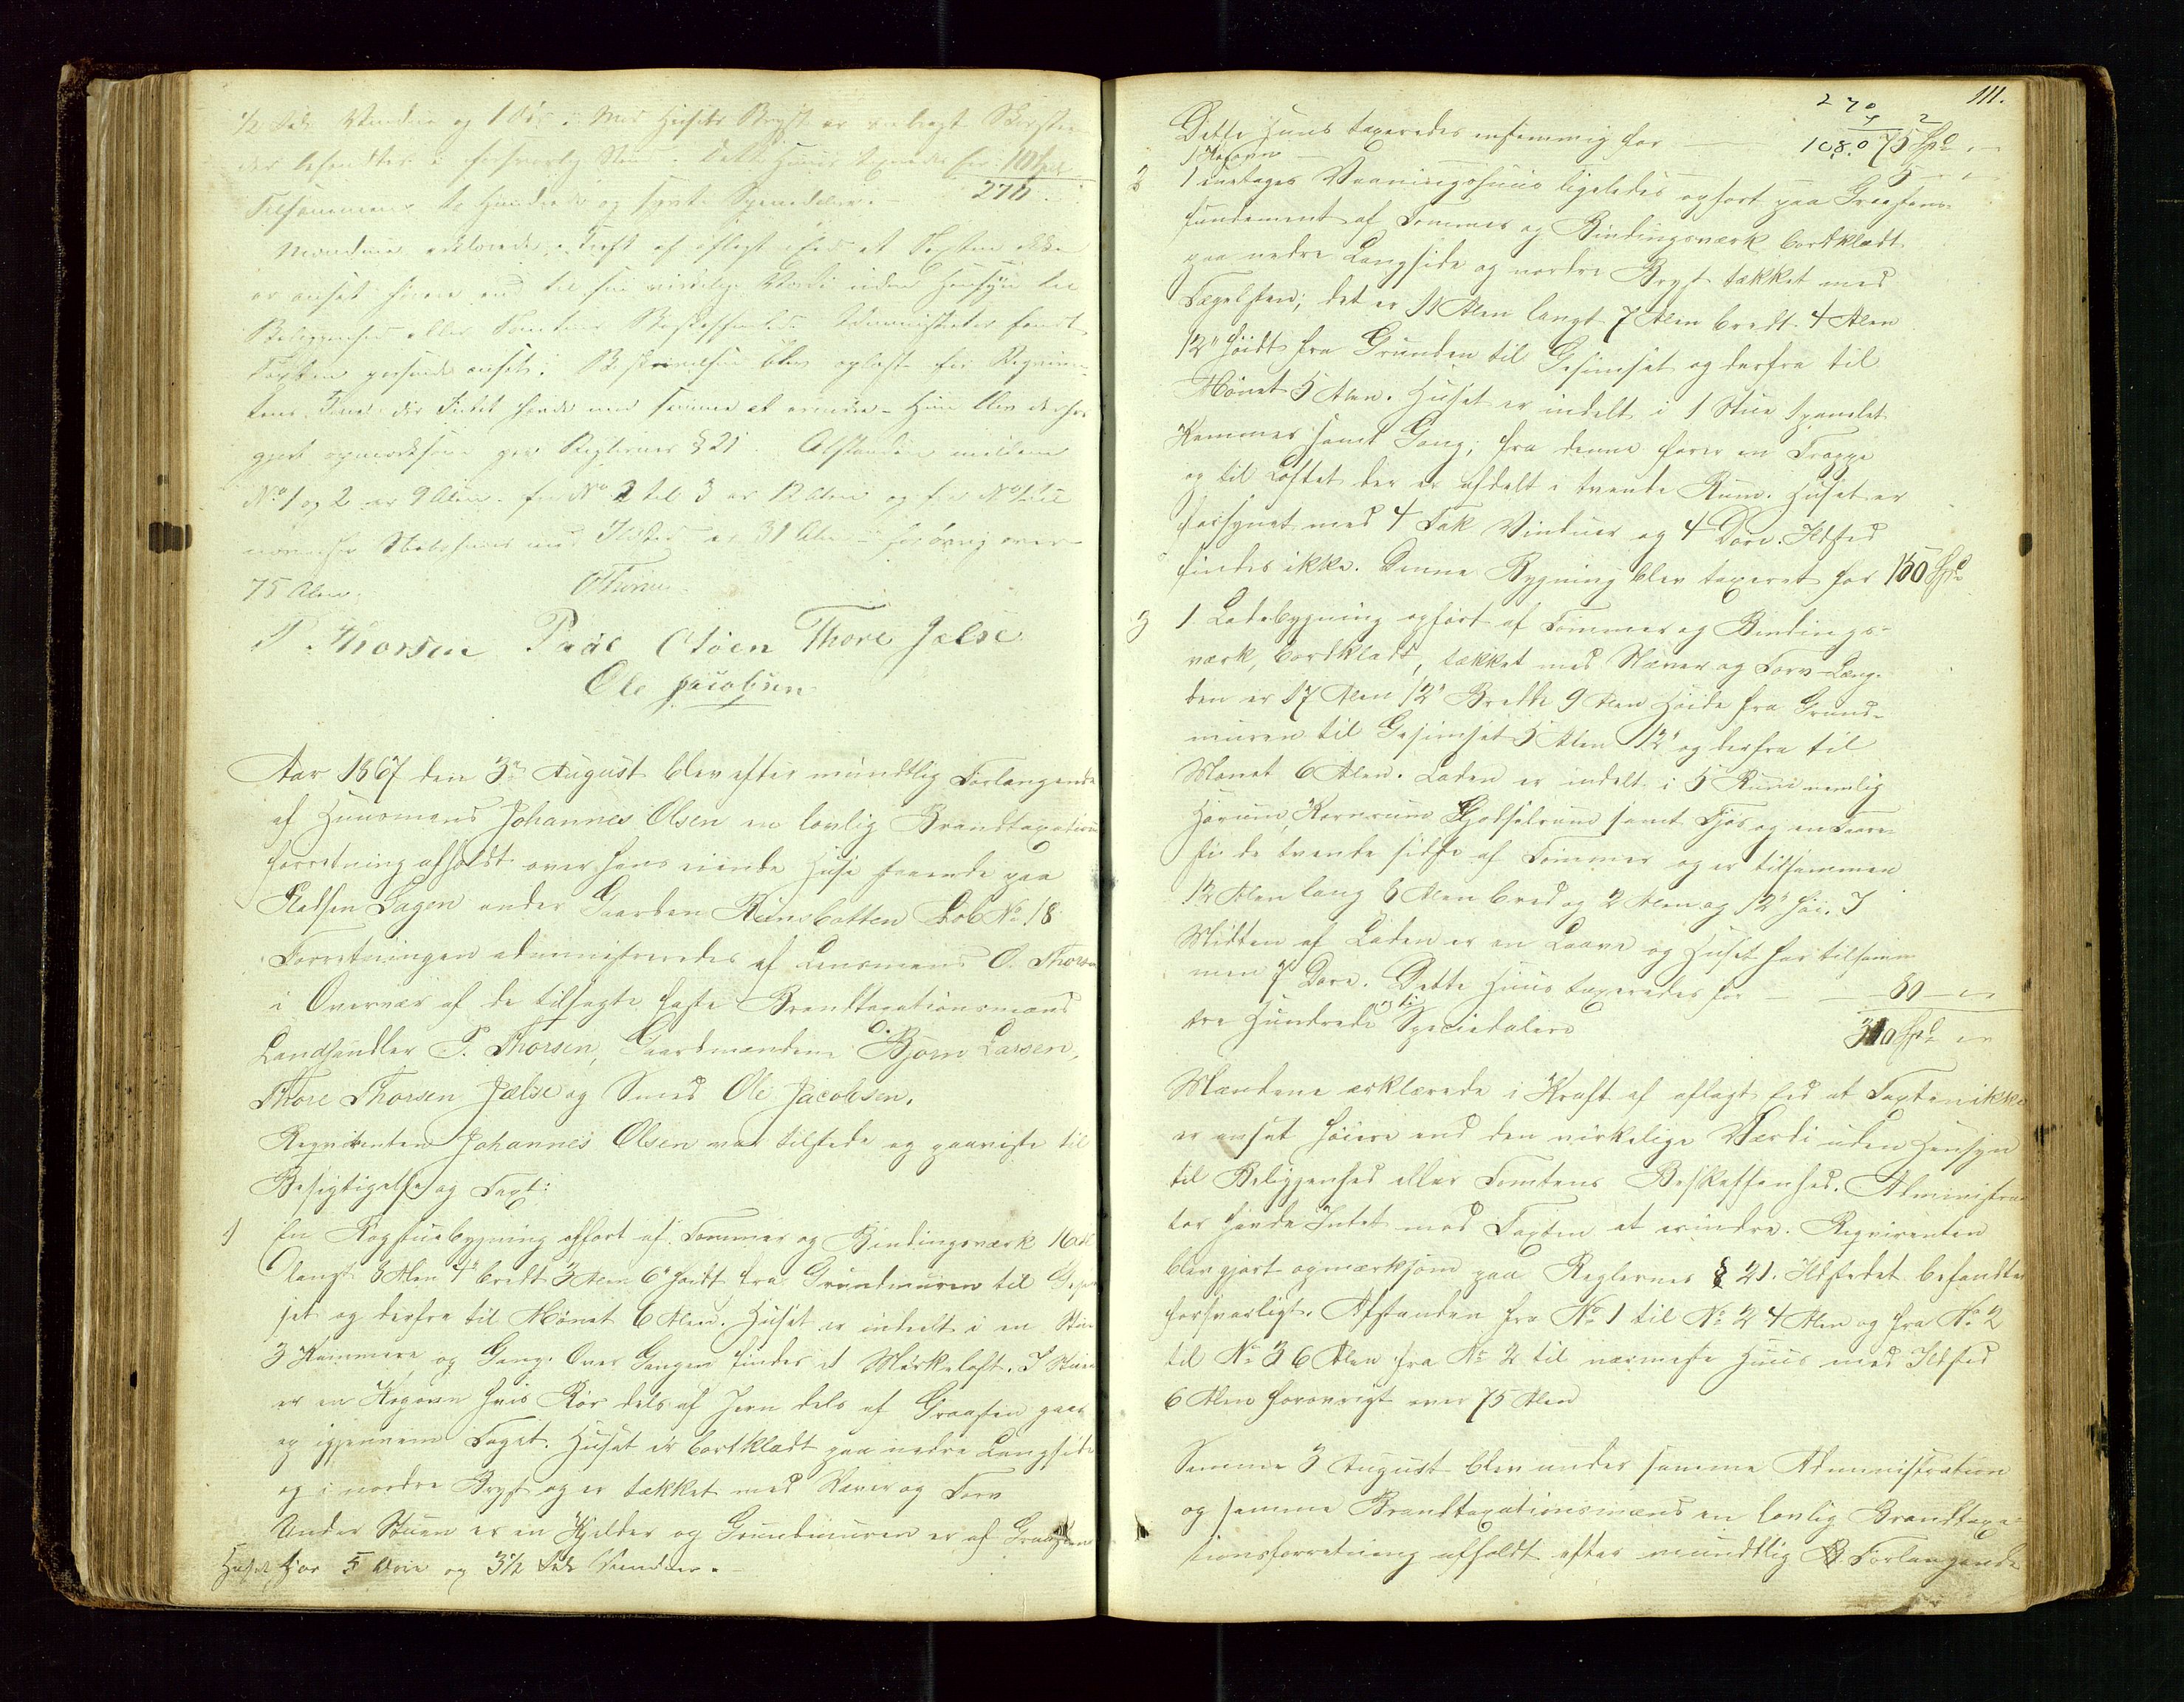 1/2 Fak Vinduer og 1 Dør. Med Husets Bryst er anbragt Skorsteen
der befandtes i forsvarlig Stand. Dette Huus taxeredes for 10 Spd
Tilsammen to Hundrede og Specidaler. 270.
Mændene erklærede i Kraft af aflagt Eed at Taxten ikke
er ansat høiere end til sin virkelige Værdi uden Hensyn til
Beliggenhed eller Tomtens Beskaffenhed. Administrator fandt
Taxten passende ansat. Beskrivelsen blev oplæst for Reqviren-
ten der Intet havde mod samme at erindre. Han blev derhos
gjort opmærksom paa Reglernes § 21. Afstanden mellem
No 1 og 2 er 9 Alen. fra No 2 til 3 er 12 Alen og fra No 1 til
nærmeste Huus med Ildsted er 31 Alen forøvrig over
75 Alen. OThorsen
P. Thorsen Paal Oloen Thore Jelse
Ole Jacobsen
Aar 1867 den 3die August blev efter mundtlig Forlangende
af Huusmand Johannes Olsen en lovlig Brandtaxations
forretning afholdt over hans eiende Huse staaende paa
Pladsen Lagen under Gaarden Løb No 18
Forretningen administreredes af Lensmand O. Thorsen
i Overvær af de tilsagte faste Brandtaxationsmænd
Landhandler P. Thorsen, Gaardmændene Bjørn O. Larsen,
Thore Thorsen Jælse og Smed Ole Jacobsen.
Reqvirenten Johannes Olsen var tilstede og paaviste til
Besigtigelse og Taxt:
1) En Røgstuebygning opført af Tømmer og Bindingsværk 16 Al
langt 8 Alen 4" bredt 3 Alen 6" høidt fra Grundmuren til Gesim
set og derfra til Mønet 6 Alen. Huset er indeelt i en Stue
3 Kammere og Gang. Over Gangen findes et Mørkeloft. I Stuen
er en Kogovn hvis Rør dels af Jern dels af Graasten gaar
op igjennem Taget. Huset er bordklædt paa nedre Langside
og i nordre Bryst og er tækket med Næver og Torv
Under Stuen er en Kjelder og Grundmuren er af Graasten
Huset har 5 Døre og 3 1/2 Fak Vinduer.
111.
270
2
Dette Huus taxeredes enstemmig for 108.0 75 Spd
1 Kogovn 5
2 1 enetages Vaaningshuus ligeledes opført paa Graastens-
fundament af Tømmer og Bindingsværk bordklædt
paa nedre Langside og nordre Bryst tækket med
Tegelsten; det er 11 Alen langt 7 Alen bredt 4 Alen
12" høidt fra Grunden til Gesimset og derfra til
Mønet 5 Alen. Huset er indelt i 1 Stue 1 panelet
Kammer samt Gang; fra denne fører en Trappe
op til Loftet der er afdelt i tvende Rum. Huset er
forsynet med 4 Fak Vinduer og 4 Døre. Ildsted
findes ikke. Denne Bygning blev taxeret for 150 Spd
3 1 Ladebygning opført af Tømmer og Bindings-
værk, bordklædt, tækket med Næver og Torv Læng-
den er 17 Alen 12" Bredde 9 Alen Høide fra Grund-
muren til Gesimset 5 Alen 12" og derfra til
Mønet 6 Alen. Laden er indelt i 5 Rum nemlig
Hørum, Kornrum Gjødselrum samt Fjøs og en Faare-
sti de tvende sidste af Tømmer og er tilsammen
12 Alen lang 6 Alen bred og 2 Alen og 12" høi. I
Midten af Laden er en Laave og Huset har tilsam-
men 7 Døre. Dette Huus taxeredes for 80
tre Hundrede og ti Speciedalere 310 Spd
Mændene erklærede i Kraft af aflagt Eed at Taxten ikke
er ansat høiere end den virkelige Værdi uden Hensyn
til Beliggenhed eller Tomtens Beskaffenhed. Administra
tor havde Intet mod Taxten at erindre. Reqvirenten
blev gjort opmærksom paa Reglernes § 21. Ildstedet befandtes
forsvarligt. Afstanden fra No 1 til No 2 4 Alen og fra No 2
til No 3 6 Alen fra No 2 til nærmeste Huus med Ildsted
6 Alen forøvrigt over 75 Alen
Samme 3 August blev under samme Administration
og samme Brandtaxationsmænd en lovlig Brandtaxa-
tionsforretning afholdt efter mundtlig Forlangende